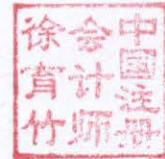 中国注册
会计师
徐育竹